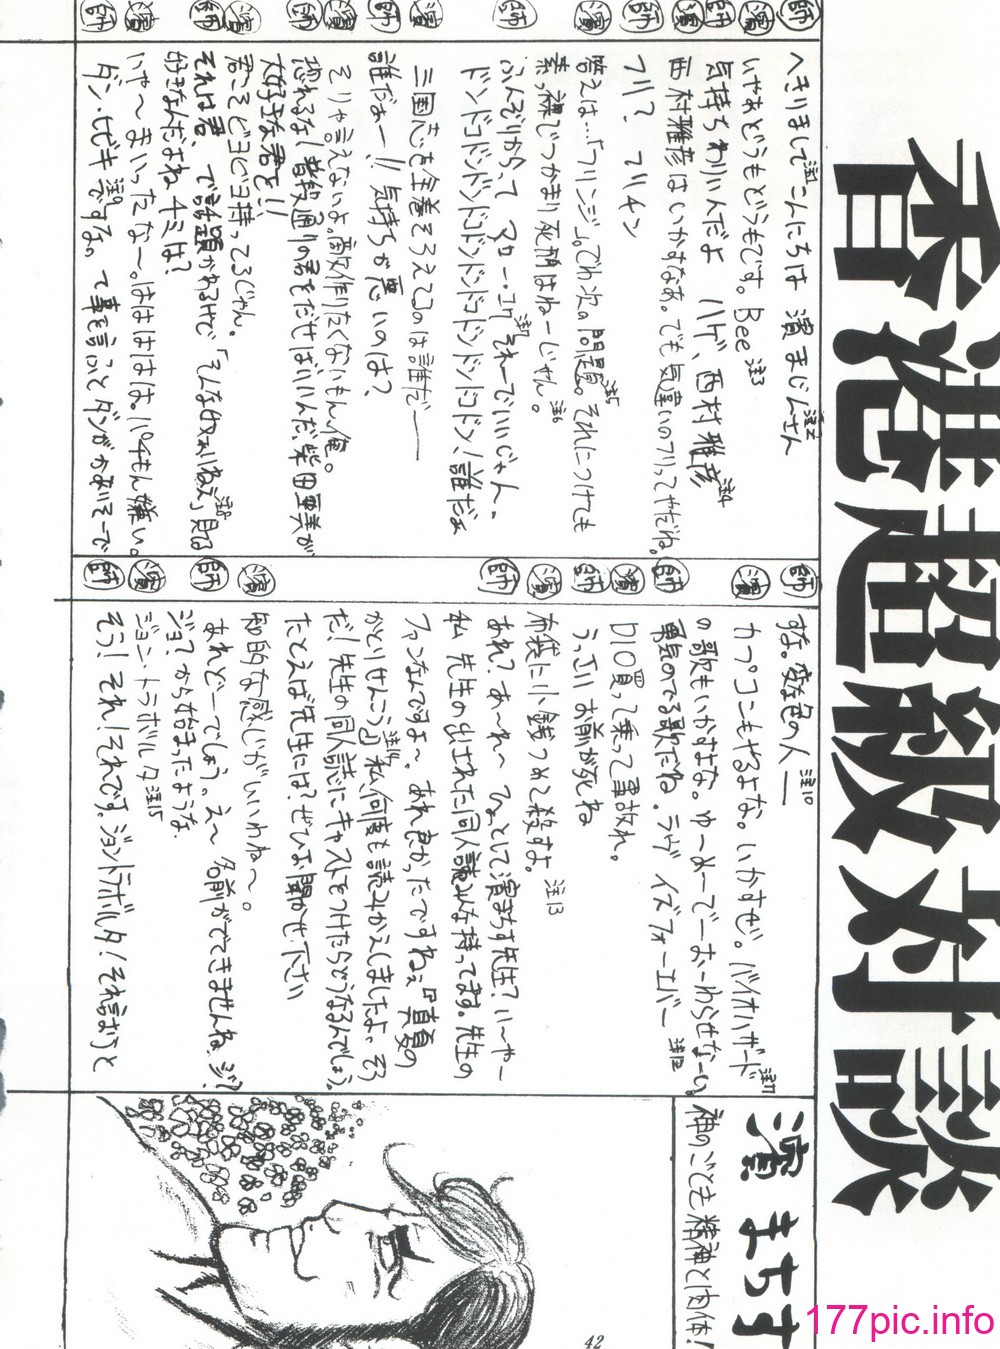 香港超級対談
師 へきりまして注1こんにちは 濱まじんさん注2
濱 いやあどうもどうもです。Bee注3
師 気持ちわりいんだよ ハゲ、西村雅彦注4
濱 西村雅彦はいかすなあ。でも気違いのフリってやだね。
師 フリ? でりチン
濱 答えは…「フリンジ」。でわ次の問題。注5それにつけても
素っ裸でつかまり死刑はねーじゃん。注6
師 ふんぞりかってマロー・コケ注7それーでいいじゃん・
ドンドコドンドンドコドンドンドコドン!誰だぁ
濱 三国志を全巻そろえてるのは誰だ――
師 誰だぁー!!気持ちが悪いのは?
濱 そりゃ言えないよ。敵作りたくないもん俺。
師 恐れるな!普段通りの君をだせばいいんだ、柴田亜美が
大好きな君を!!
濱 君こそピヨピヨ持ってるじゃん。
師 それは君、で話題かわるけで「そんなやかりねえ」注8見る
好きなんだよね キミは?
濱 いや〜まいったな〜。はははははは。パチもん嫌い。
師 ダン・ヒビキ注9ですな。って事を言うとダンがかわいそーで
師 すな。変な色の人――注10
濱 カプコンもやるよな。いかすぜ。バイオハザード注11
の歌もいかすよな。ゆーめーでーおーわらせなーい。
師 勇気のでる歌だね。ラヴ イズ フォーエバー注12
濱 DIO買って乗って事故れ。
師 うっさい お前が死ね
濱 布袋に小銭つめて殺すよ。注13
師 あれ?あ〜れへ ひょっとして濱まちす先生?い〜や―
私 先生の出された同人誌みんな持ってます。先生の
ファンなんですよ〜。あれ良かったですねぇ『真夏の
かとりせんこう』注14私何度も読みかえしましたよ。そう
だ!先生の同人誌にキャストをつけたらどうなるんでしょう。
たとえば先生には?ぜひお聞かせ下さい
濱 知的な感じがいいわね〜。
師 あれどーでしょう。え〜 名前がでてきませんね、ジ?
ジョ?から始まったような
濱 ジョン・トラボルタ注15
師 そう!それ!それです。ジョントラボルタ!それ言おうと
濱 まちす
神のごとき精神と肉体!
42
177pic.info